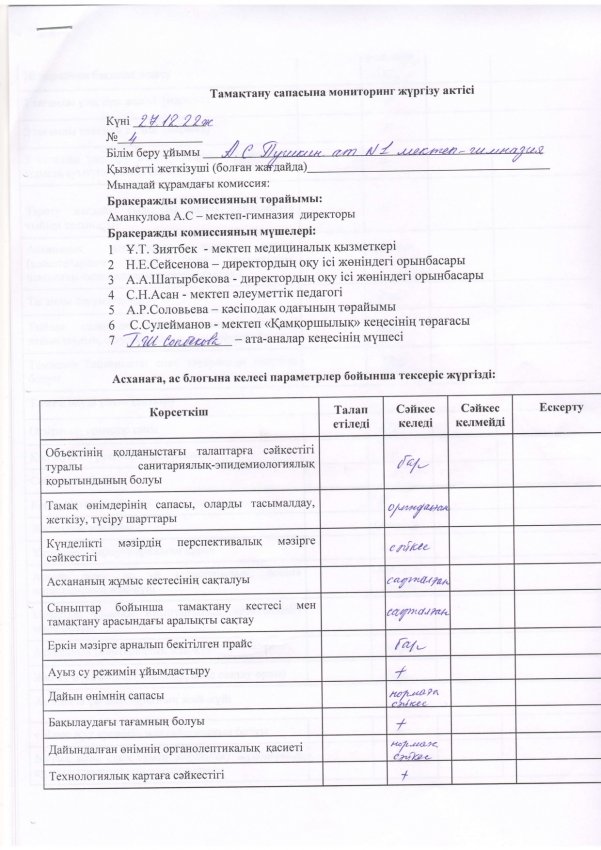 Тамақтану сапасына мониторинг жүргізу актісі
Күні 27.12.22ж
№ 4
Білім беру ұйымы А С Пушкин ат N1 мектеп-гимназия
Қызметті жеткізуші (болған жағдайда)
Мынадай құрамдағы комиссия:
Бракеражды комиссияның төрайымы:
Аманкулова А.С – мектеп-гимназия директоры
Бракеражды комиссияның мүшелері:
1 Ұ.Т. Зиятбек - мектеп медициналық қызметкері
2 Н.Е.Сейсенова – директордың оқу ісі жөніндегі орынбасары
3 А.А.Шатырбекова - директордың оқу ісі жөніндегі орынбасары
4 С.Н.Асан - мектеп әлеуметтік педагогі
5 А.Р.Соловьева – кәсіподақ одағының төрайымы
6 С.Сулейманов - мектеп «Қамқоршылық» кеңесінің төрағасы
7 – ата-аналар кеңесінің мүшесі
Асханаға, ас блогына келесі параметрлер бойынша тексеріс жүргізді:
Көрсеткіш Талап Сәйкес Сәйкес Ескерту
етіледі келеді келмейді
Объектінің қолданыстағы талаптарға сәйкестігі
туралы санитариялық-эпидемиологиялық бар
қорытындының болуы
Тамақ өнімдерінің сапасы, оларды тасымалдау, орындалған
жеткізу, түсіру шарттары
Күнделікті мәзірдің перспективалық мәзірге сәйкес
сәйкестігі
Асхананың жұмыс кестесінің сақталуы сақталған
Сыныптар бойынша тамақтану кестесі мен сақталған
тамақтану арасындағы аралықты сақтау
Еркін мәзірге арналып бекітілген прайс бар
Ауыз су режимін ұйымдастыру +
Дайын өнімнің сапасы нормаға
сәйкес
Бақылаудағы тағамның болуы +
Дайындалған өнімнің органолептикалық қасиеті нормаға
сәйкес
Технологиялық картаға сәйкестігі +